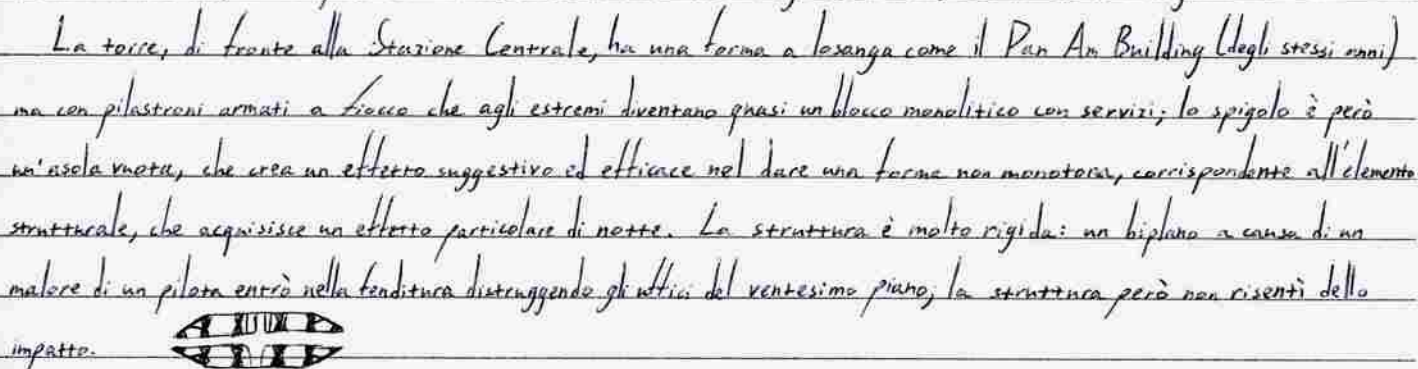 La torre, di fronte alla Stazione Centrale, ha una forma a losanga come il Pan Am Building (degli stessi anni)
ma con pilastroni armati a fiocco che agli estremi diventano quasi un blocco monolitico con servizi; lo spigolo è però
un'asola vuota, che crea un effetto suggestivo ed efficace nel dare una forma non monotona, corrispondente all'elemento
strutturale, che acquisisce un effetto particolare di notte. La struttura è molto rigida: un biplano a causa di un
malore di un pilota entrò nella fenditura distruggendo gli uffici del ventesimo piano, la struttura però non risentì dello
impatto.